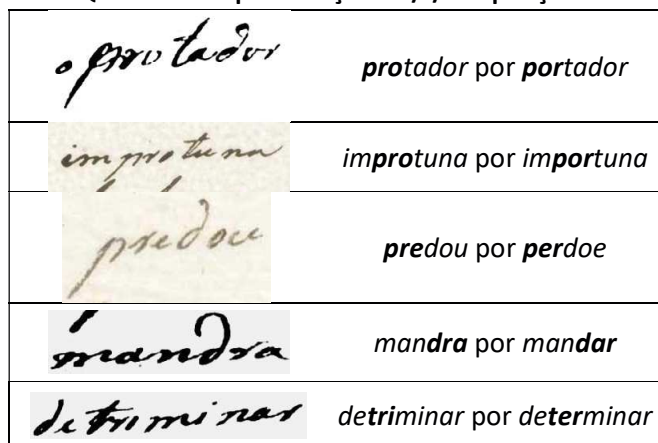 o protador
protador por portador
improtuna
improtuna por importuna
predou
predou por perdoe
mandra
mandra por mandar
detriminar
detriminar por determinar